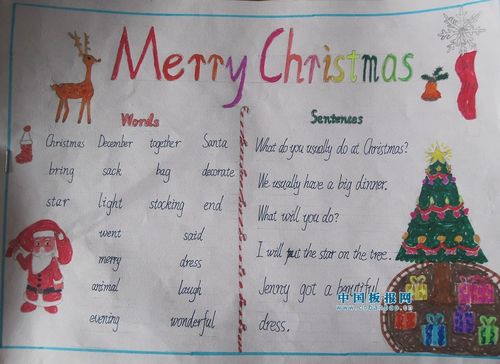 Merry Christmas
Words
Christmas December together Santa
bring sack bag decorate
star light stocking end
went said
merry dress
animal laugh
evening wonderful
Sentences
What do you usually do at Christmas?
We usually have a big dinner.
What will you do?
I will put the star on the tree.
Jenny got a beautiful
dress.
中国板报网